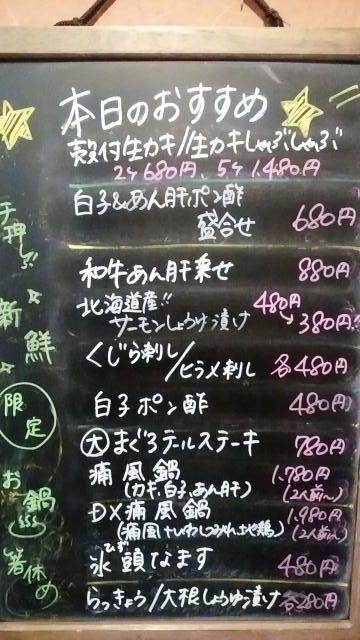 本日のおすすめ
殻付生カキ/生カキしゃぶしゃぶ
2ケ680円、5ケ1,480円
白子&あん肝ポン酢
盛合せ 680円
和牛あん肝乗せ 880円
北海道産!! 480円
サーモンしょうゆ漬け →380円
くじら刺し/ヒラメ刺し 各480円
白子ポン酢 480円
大まぐろテールステーキ 780円
痛風鍋 1,780円
(カキ、白子、あん肝) (2人前〜)
DX痛風鍋 1,980円
(痛風+いわしつみれ、地鶏) (2人前〜)
氷頭なます 480円
ひず
らっきょう/大根しょうゆ漬け 各280円
押し!!
新鮮
限定
お鍋
箸休め